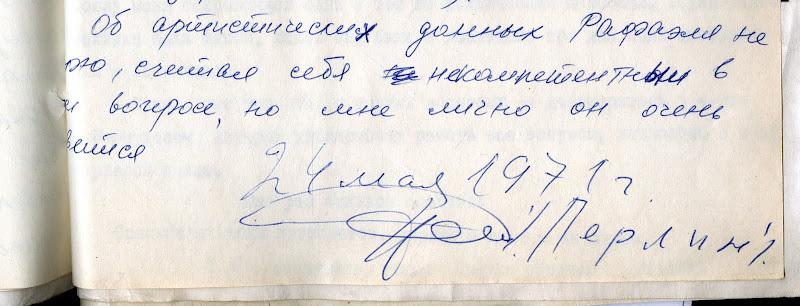 Об артистических данных Рафаэля не
рю, считая себя некомпетентным в
м вопросе, но мне лично он очень
вится
24 мая 1971 г.
/Перлин/